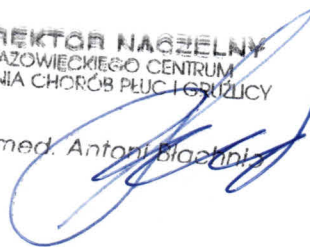 REKTOR NACZELNY
AZOWIECKIEGO CENTRUM
NIA CHORÓB PŁUC I GRUŹLICY
med. Antoni Błachnio